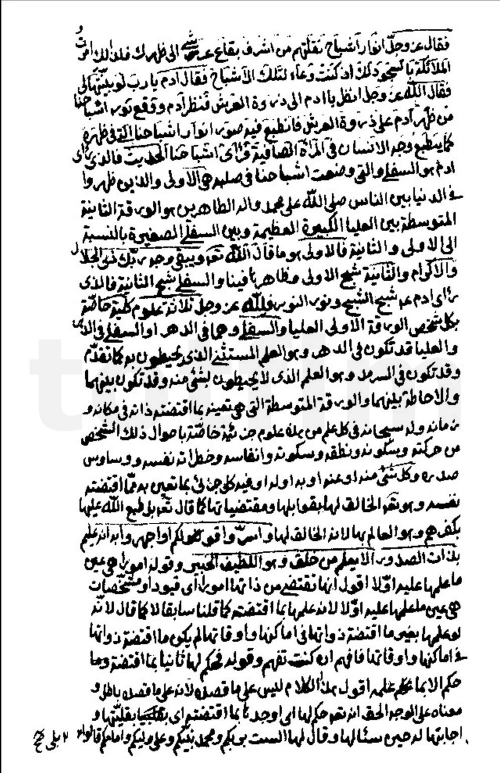 فقال عز وجل انوار اشباح نقلتهم من اشرف بقاع عرشي الى ظهرك فلذلك امرت
الملائكة بالسجود لك اذ كنت وعاء لتلك الاشباح فقال ادم يا رب لو بينتها لي
فقال الله عز وجل انظر يا ادم الى ذروة العرش فنظر ادم ووقع نور اشباحنا
من ظهر ادم على ذروة العرش فانطبع فيه صور انوار اشباحنا التي في ظهره
كما ينطبع وجه الانسان في المرآة الصافية فرأى اشباحنا الحديث فالذي رأى
ادم هو السفلى والتي وضعت اشباحنا في صلبه هي الاولى والذين ظهروا
في الدنيا بين الناس صلى الله على محمد واله الطاهرين هو الورقة الثانية
المتوسطة بين العليا الكبيرة العظيمة وبين السفلى الصغيرة بالنسبة
الى الاولى والثانية فالاولى هو ما قال الله تعالى ويبقى وجه ربك ذي الجلال
والاكرام والثانية شبح الاولى ومظاهرنا فينا والسفلى شبح الثانية فالذي
رأى ادم عم شبح الشبح ونور النور ولله عز وجل ثلاثة علوم كلية خاصة
بكل شخص الورقة الاولى العليا والسفلى وهي في الدهر او السفلى في الدهر
والعليا قد تكون في الدهر وهو العلم المستثنى الذي يحيطون به كما تقدم
وقد تكون في السرمد وهو العلم الذي لا يحيطون بشئ منه وقد تكون بينهما
والاحاطة بينهما والورقة المتوسطة التي هي تعينه بما اقتضته ذاته في مكانه و
زمانه وله سبحانه في كل علم من هذه علوم جزئية خاصة باحوال ذلك الشخص
من حركته وسكونه ونطقه وسكوته وانفاسه وخطراته نفسه ووساوس
صدره وكل شئ منه او عنه او به او له او فيه كل جزئي بما تعين به مما اقتضته
نفسه وهو تعالى الخالق لها بقوابلها ومقتضياتها كما قال تعالى بل طبع الله عليها
بكفرهم وهو العالم بها لانه الخالق لها واسروا قولكم او اجهروا به انه عليم
بذات الصدور الا يعلم من خلق وهو اللطيف الخبير وقوله امورا هي عين
ما علمها عليه اولا اقول انها تقتضي من ذاتها امورا اي قيود او مشخصات
هي عين ما علمها عليه اولا لانه علمها بما اقتضته كما قلنا سابقا لا كما قال لانه
لو علمها بغير ما اقتضته ذواتها في اماكنها واوقاتها لم يكن ما اقتضته ذواتها
في اماكنها واوقاتها فافهم ان كنت تفهم وقوله فحكم لها ثانيا بما اقتضته وما
حكم الا بما حكم علمه اقول هذا الكلام ليس على ما قصده لانه على ما قصده باطل و
معناه على الوجه الحق انه تعالى حكم لها اي اوجدها بما اقتضته اي بقابليتها و
اجابتها له حين سئالها وقال لها الست بربكم ومحمد نبيكم وعلى وليكم وامامكم قالوا بلى